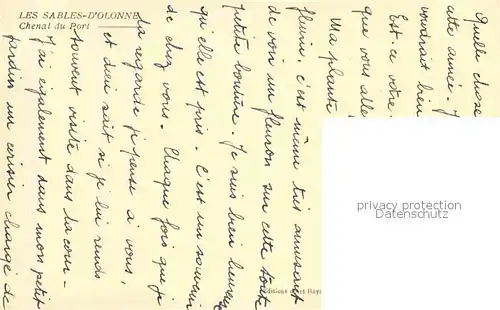 LES SABLES-D'OLONNE
Chenal du Port
Quelle chose
cette année. J
voudrait bien
Est-ce votre
que vous alle
Ma plante
fleurir, c'est même très amusant
de voir un fleuron sur cette toute
petite bouture. Je suis bien heureuse
qu'elle est pris. C'est un souvenir
de chez vous. Chaque fois que je
la regarde je pense à vous,
et dieu sait si je lui rends
souvent visite dans la cour-
J'ai également dans mon petit
jardin un cerisier chargé de
privacy protection
Sammlerdatenbank.de